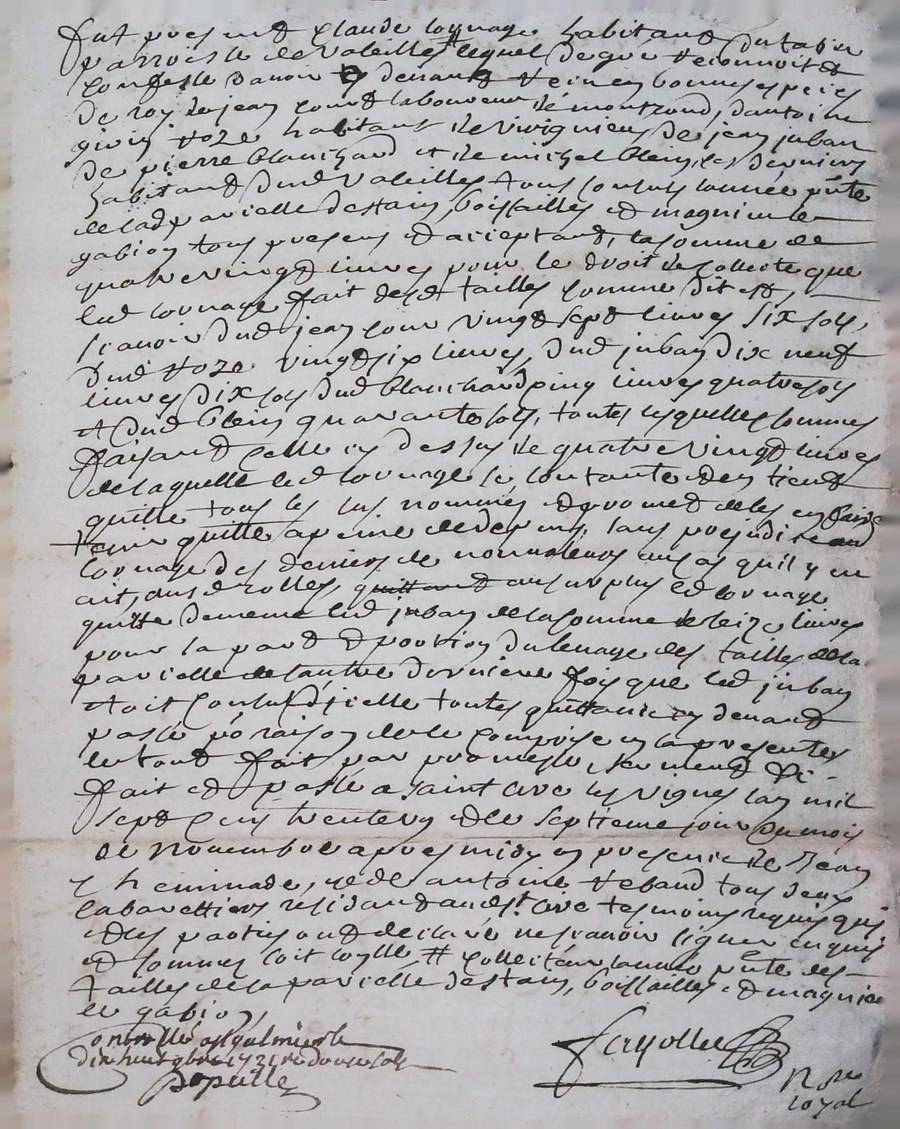 fut present Claude tournage habitant du
parroisse de valeilles # lequel de gré reconnoit &
confesse d'avoir cy devant receu en bonnes espèces
de roy de jean cour laboureur de montrond, d'antoine
roze habitant de rivignieu de jean juban
de pierre blanchard et de michel blein, les derniers
habitant dud valeilles tous consuls l'année pñte
de lad parcelle destain, boissailles et magnieu le
gabion tous presens et acceptant, la somme de
quatre vingt livres pour le droit de collecte que
led tournage fait desd tailles comme dit est,
scavoir dud jean cour vingt sept livres six sols,
dud roze vingt six livres, dud juban dix neuf
livres dix sols dud blanchard cinq livres quatre sols
et dud blein quarante sols, toutes lesquelles sommes
faisant celle cy dessus de quatre vingt livres
de laquelle led tournage se contante et en tient
quitte tous les sus nommés et promet de les en faire
tenir quitte a peine de dep sans prejudice aud
tournage des deniers de nonvaleurs en cas qu'il y en
ait, aus d rolles, quittant au surplus led tournage
quitte de meme led juban de la somme de seize livres
pour la part et portion du levage des tailles de la
parcelle de l'autre derniere fois que led juban
étoit consul d'icelle toutes quittances cy devant
passé pr raison de ce comprise en la presentes
le tout fait par promesse, serment &c
fait et passé a saint cire les vignes l'an mil
sept cens trente un et le septieme jour du mois
de novembre apres midy en presence de jean
heminade, et de antoine rebaud tous deux
cabarettiers residant aud st cire tesmoins requis qui
et les parties ont declaré ne scavoir signer enquis
et sommés soit # collecteur l'année pñte des
tailles de la parcelle destain, boissailles et magnieu
le gabion,
Controllé a st galmier le
dix huit 9bre 1731 reçu douze sols
populle
fayolle
nore
royal